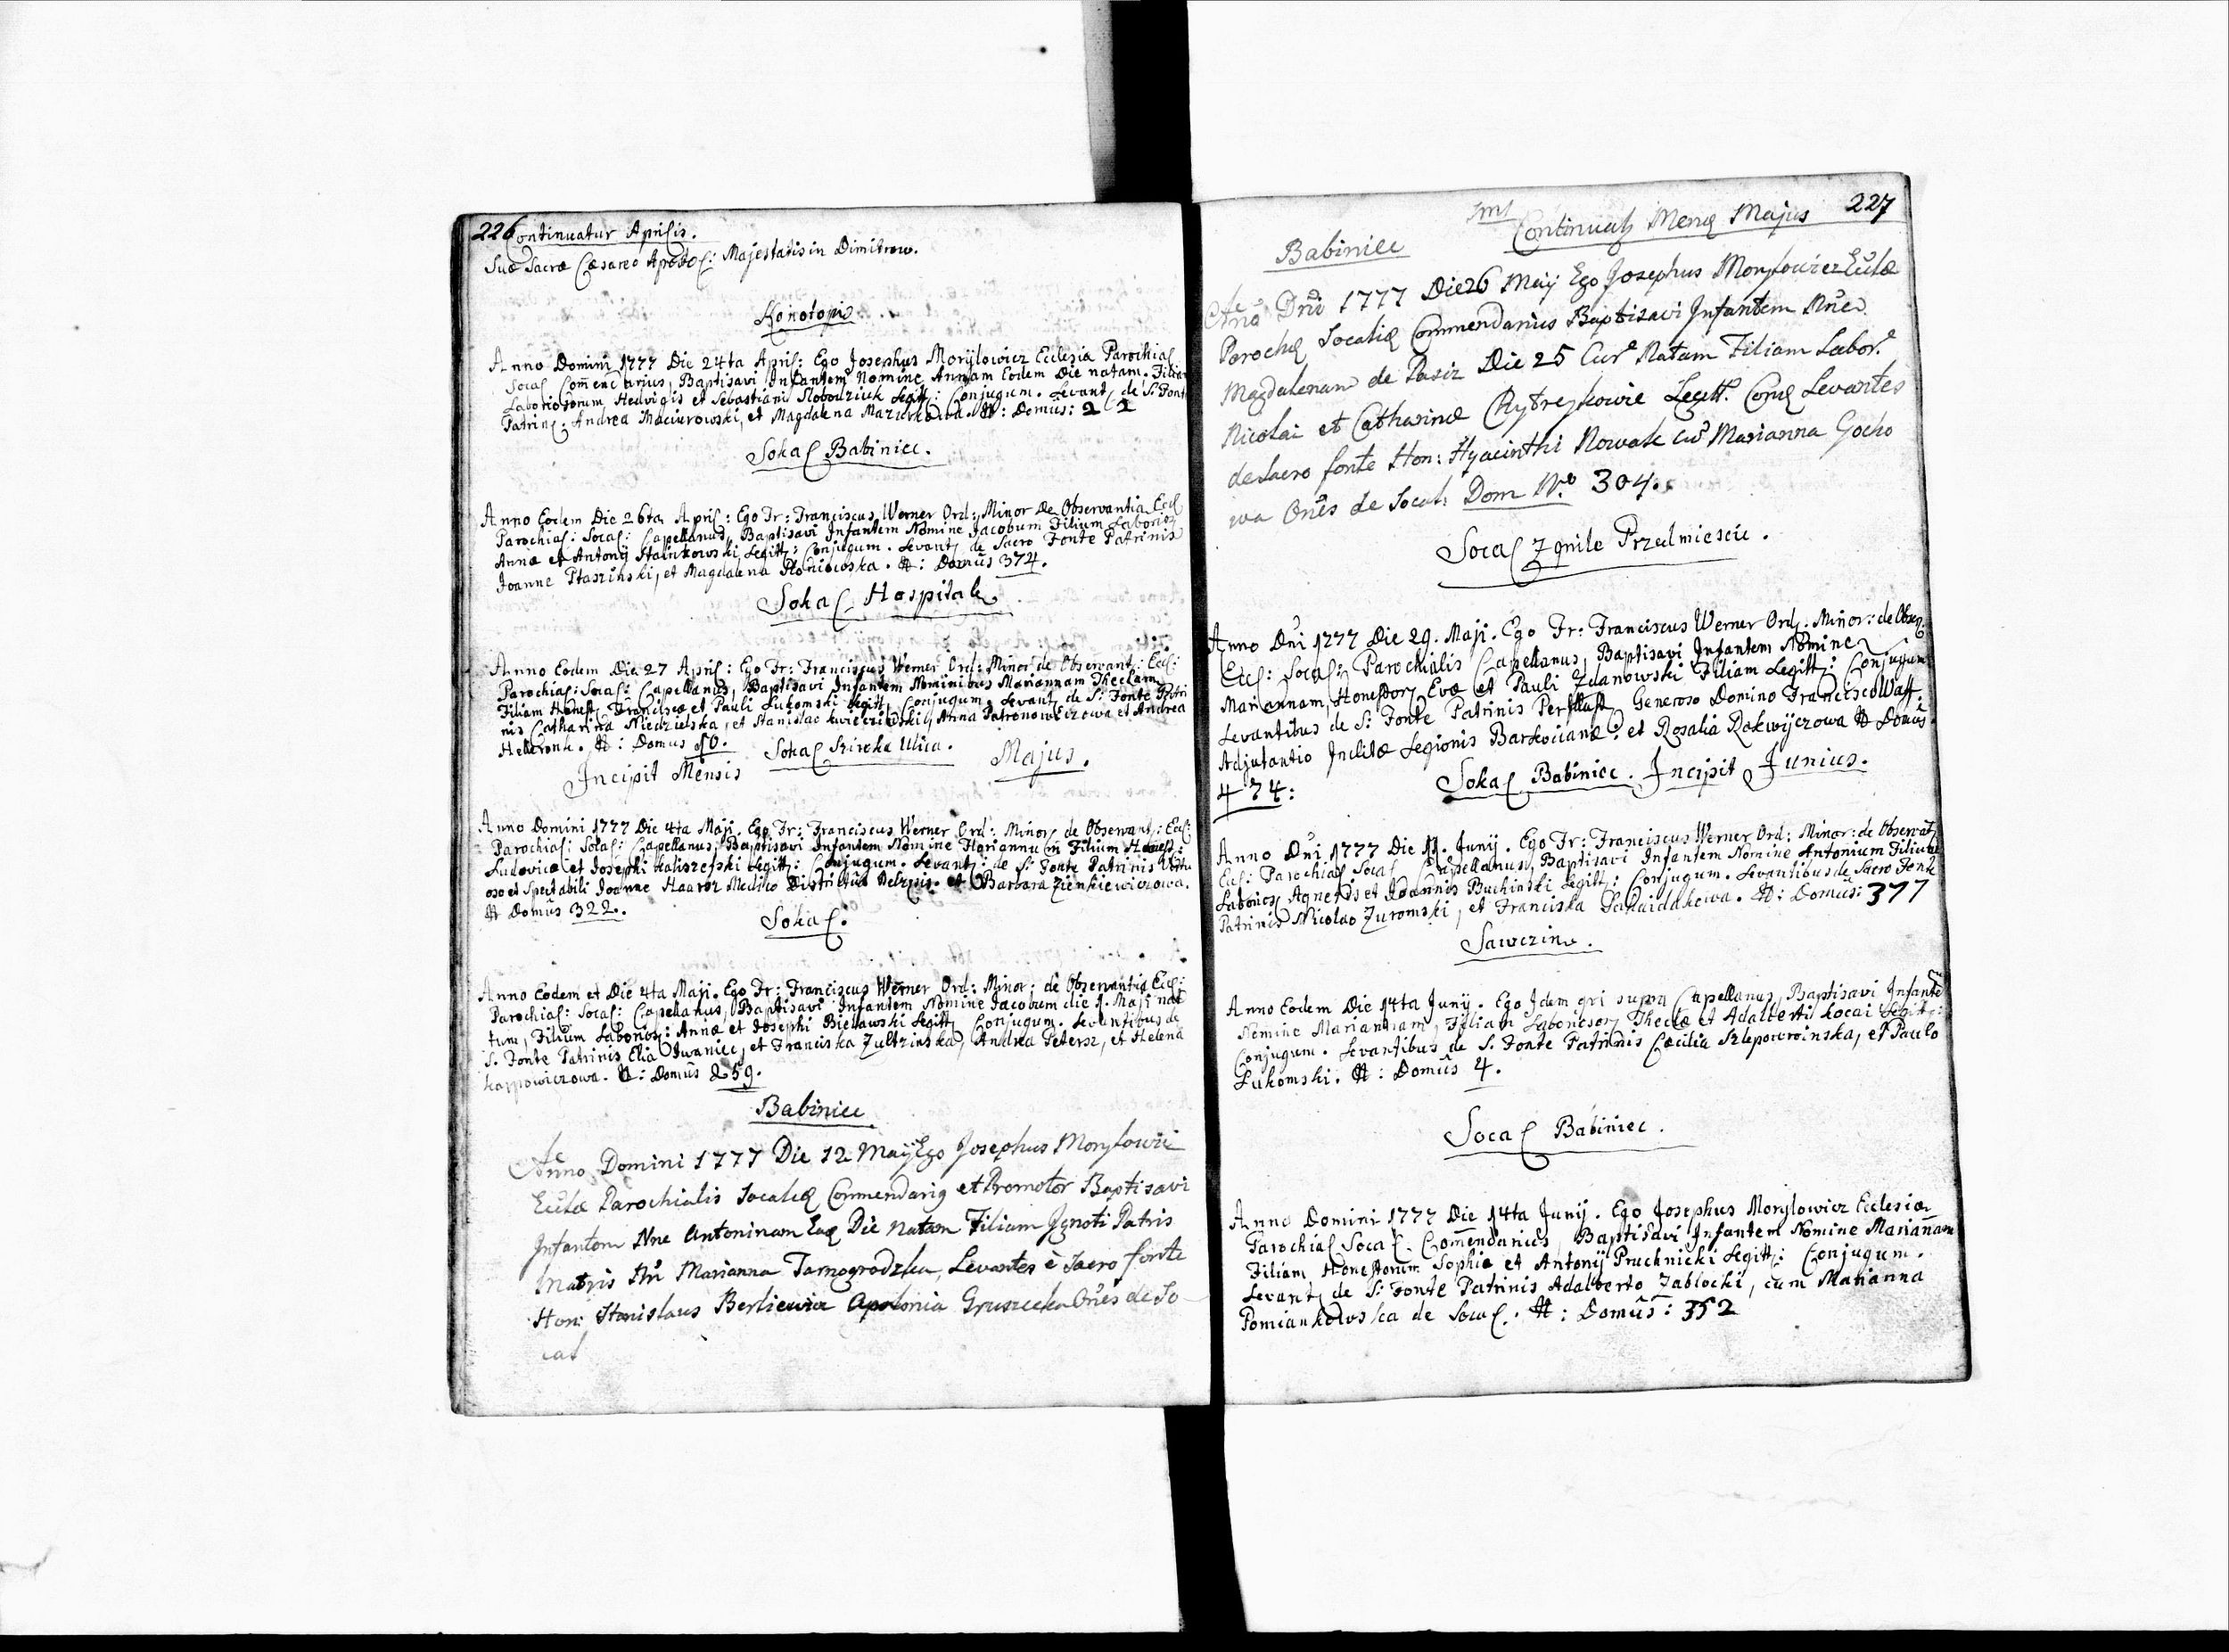 226 Continuatur Aprilis.
Suæ Sacræ Cæsareo Apostol: Majestatis in Dimitrow.
Konotopie
Anno Domini 1777 Die 24ta April: Ego Josephus Morylowicz Ecclesia Parochial
Socal Com̄endarius, Baptisavi Infantem Nomine Annam Eodem Die natam. Filiam
Laboriosorum Hedvigis et Sebastiani Slobodziuk Legitt: Conjugum. Levant de S: Fonte
Patrinis: Andrea Maciurowski, et Magdalena Mazurkowa. N: Domus: 2
Sokal Babiniec.
Anno Eodem Die 26ta April: Ego Fr: Franciscus Werner Ord: Minor De Observantia Eccl
Parochial: Socal: Capellanus, Baptisavi Infantem Nomine Jacobum Filium Laborios
Annæ et Antonij Stalinkowski Legitt: Conjugum. Levant de Sacro Fonte Patrinis
Joanne Ptaszinski, et Magdalena Płoniowska. N: Domûs 374.
Sokal Hospitale
Anno Eodem Die 27 April: Ego Fr: Franciscus Werner Ord: Minor de Observant: Eccl:
Parochial: Socal: Capellanus, Baptisavi Infantem Nominibus Mariannam Theclam
Filiam Honest, Franciscæ et Pauli Lukomski Legitt, Conjugum, Levant de S: Fonte Patri
nis Catharina Niedzielska, et Stanislao Kwiecinski, Anna Patronowiczowa et Andrea
N: Domus 50. Sokal Sziroka Ulica.
Incipit Mensis Majus.
Anno Domini 1777 Die 4ta Maji. Ego Fr: Franciscus Werner Ord: Minor de Observant: Eccl:
Parochial: Solal: Capellanus, Baptisavi Infantem Nomine Floriannum Filium Honest:
Ludovicæ et Josephi Kaliszefski Legitt: Conjugum. Levant: de S: Fonte Patrinis
oso et Spectabili Joanne Haaroz Medico Districtus Belzsis. et Barbara Zienkiewiczowa.
N Domûs 322.
Sokal.
Anno Eodem et Die 4ta Maji. Ego Fr: Franciscus Werner Ord: Minor: de Observantia Eccl:
Parochial: Socal: Capellanus, Baptisavi Infantem Nomine Jacobum die 1. Maji na
tum, Filium Laborios: Annæ et Josephi Bielawski Legitt Conjugum. Levantibus de
S. Fonte Patrinis Elia Iwaniec, et Franciska Zultzinska, Andrea Petersz, et Helena
Karpowiczowa. N: Domûs 259.
Babiniec
Anno Domini 1777 Die 12 Maÿ Ego Josephus Morylowic
Eccłæ Parochialis Socaliꝫ Commendariꝫ et Promotor Baptisavi
Infantem Nne Antoninam Eaꝫ Die natam Filiam Ignoti Patris
Matris Marianna Tarnogrodzka, Levantes è Sacro fonte
Hon: Stanislaus Berliewicz Apolonia Gruszecka Om̄es de So
cal
227
Continuatꝫ Mensꝫ Majus
Babiniec
Anno Dn̄i 1777 Die 26 Maij Ego Josephus Morylowicz Eccłæ
Parochꝫ Socaliꝫ Commendarius Baptisavi Infantem Nn̄e
Magdalenam de Pasiz Die 25 Cur: Natam Filiam Labor:
Nicolai et Catharinæ Chytreykowie Legitt: Conjꝫ Levantes
de Sacro fonte Hon: Hyacinthi Nowak cu Marianna Gocho
wa Om̄es de Socal: Dom N.o 304.
Socal Zgnile Przedmiescie.
Anno Dn̄i 1777 Die 29. Maji. Ego Fr: Franciscus Werner Ord. Minor: de Obser:
Eccl: Socal: Parochialis Capellanus, Baptisavi Infantem Nomine
Mariannam, Honestor Evæ et Pauli Zdanowski Filiam Legitt: Conjugum
Levantibus de S: Fonte Patrinis Perillust Generoso Domino Francisco Waff.
Adjutantio Inclitæ Legionis Barkocianæ, et Rosalia Rakwijczowa N Domûs
474:
Sokal Babiniec. Incipit Junius.
Anno Dn̄i 1777 Die 11. Junij. Ego Fr: Franciscus Werner Ord: Minor: de Observat
Eccl: Parochial Socal Capellanus, Baptisavi Infantem Nomine Antonium Filium
Laborios Agnetis et Joannis Buchinski Legitt: Conjugum. Levantibus de Sacro Fonte
Patrinis Nicolao Zuromski, et Franciska Sahaidakowa. N: Domûs: 377
Sawczin.
Anno Eodem Die 14ta Junij. Ego Idem qui supra Capellanus, Baptisavi Infante
Nomine Mariannam, Filiam Laboriosor Theclæ et Adalberti Kocai Legitt:
Conjugum. Levantibus de S. Fonte Patrinis Cæcilia Szlepowroinska, et Paulo
Lukomski. N: Domûs 4.
Socal Babiniec.
Anno Domini 1777 Die 14ta Junij. Ego Josephus Morylowicz Ecclesiæ
Parochial Socal. Com̄endarius, Baptisavi Infantem Nomine Mariannam
Filiam Honestorum Sophiæ et Antonij Pruchnicki Legitt: Conjugum.
Levant de S: Fonte Patrinis Adalberto Jablocki, cum Marianna
Pomiankowska de Socal. N: Domûs: 352